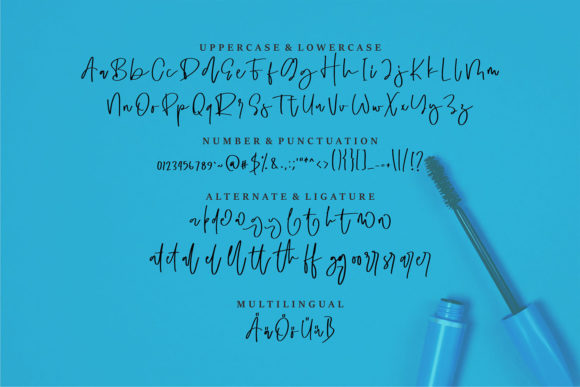 UPPERCASE & LOWERCASE
AaBbCcDdEeFfGgHhIiJjKkLlMm
NnOoPpQqRrSsTtUuVvWwXxYyZz
NUMBER & PUNCTUATION
0123456789`~@#$%&.,:;'"*^<>(){}[]_-=+\|/!?
ALTERNATE & LIGATURE
MULTILINGUAL
ÅäÖöÜüß